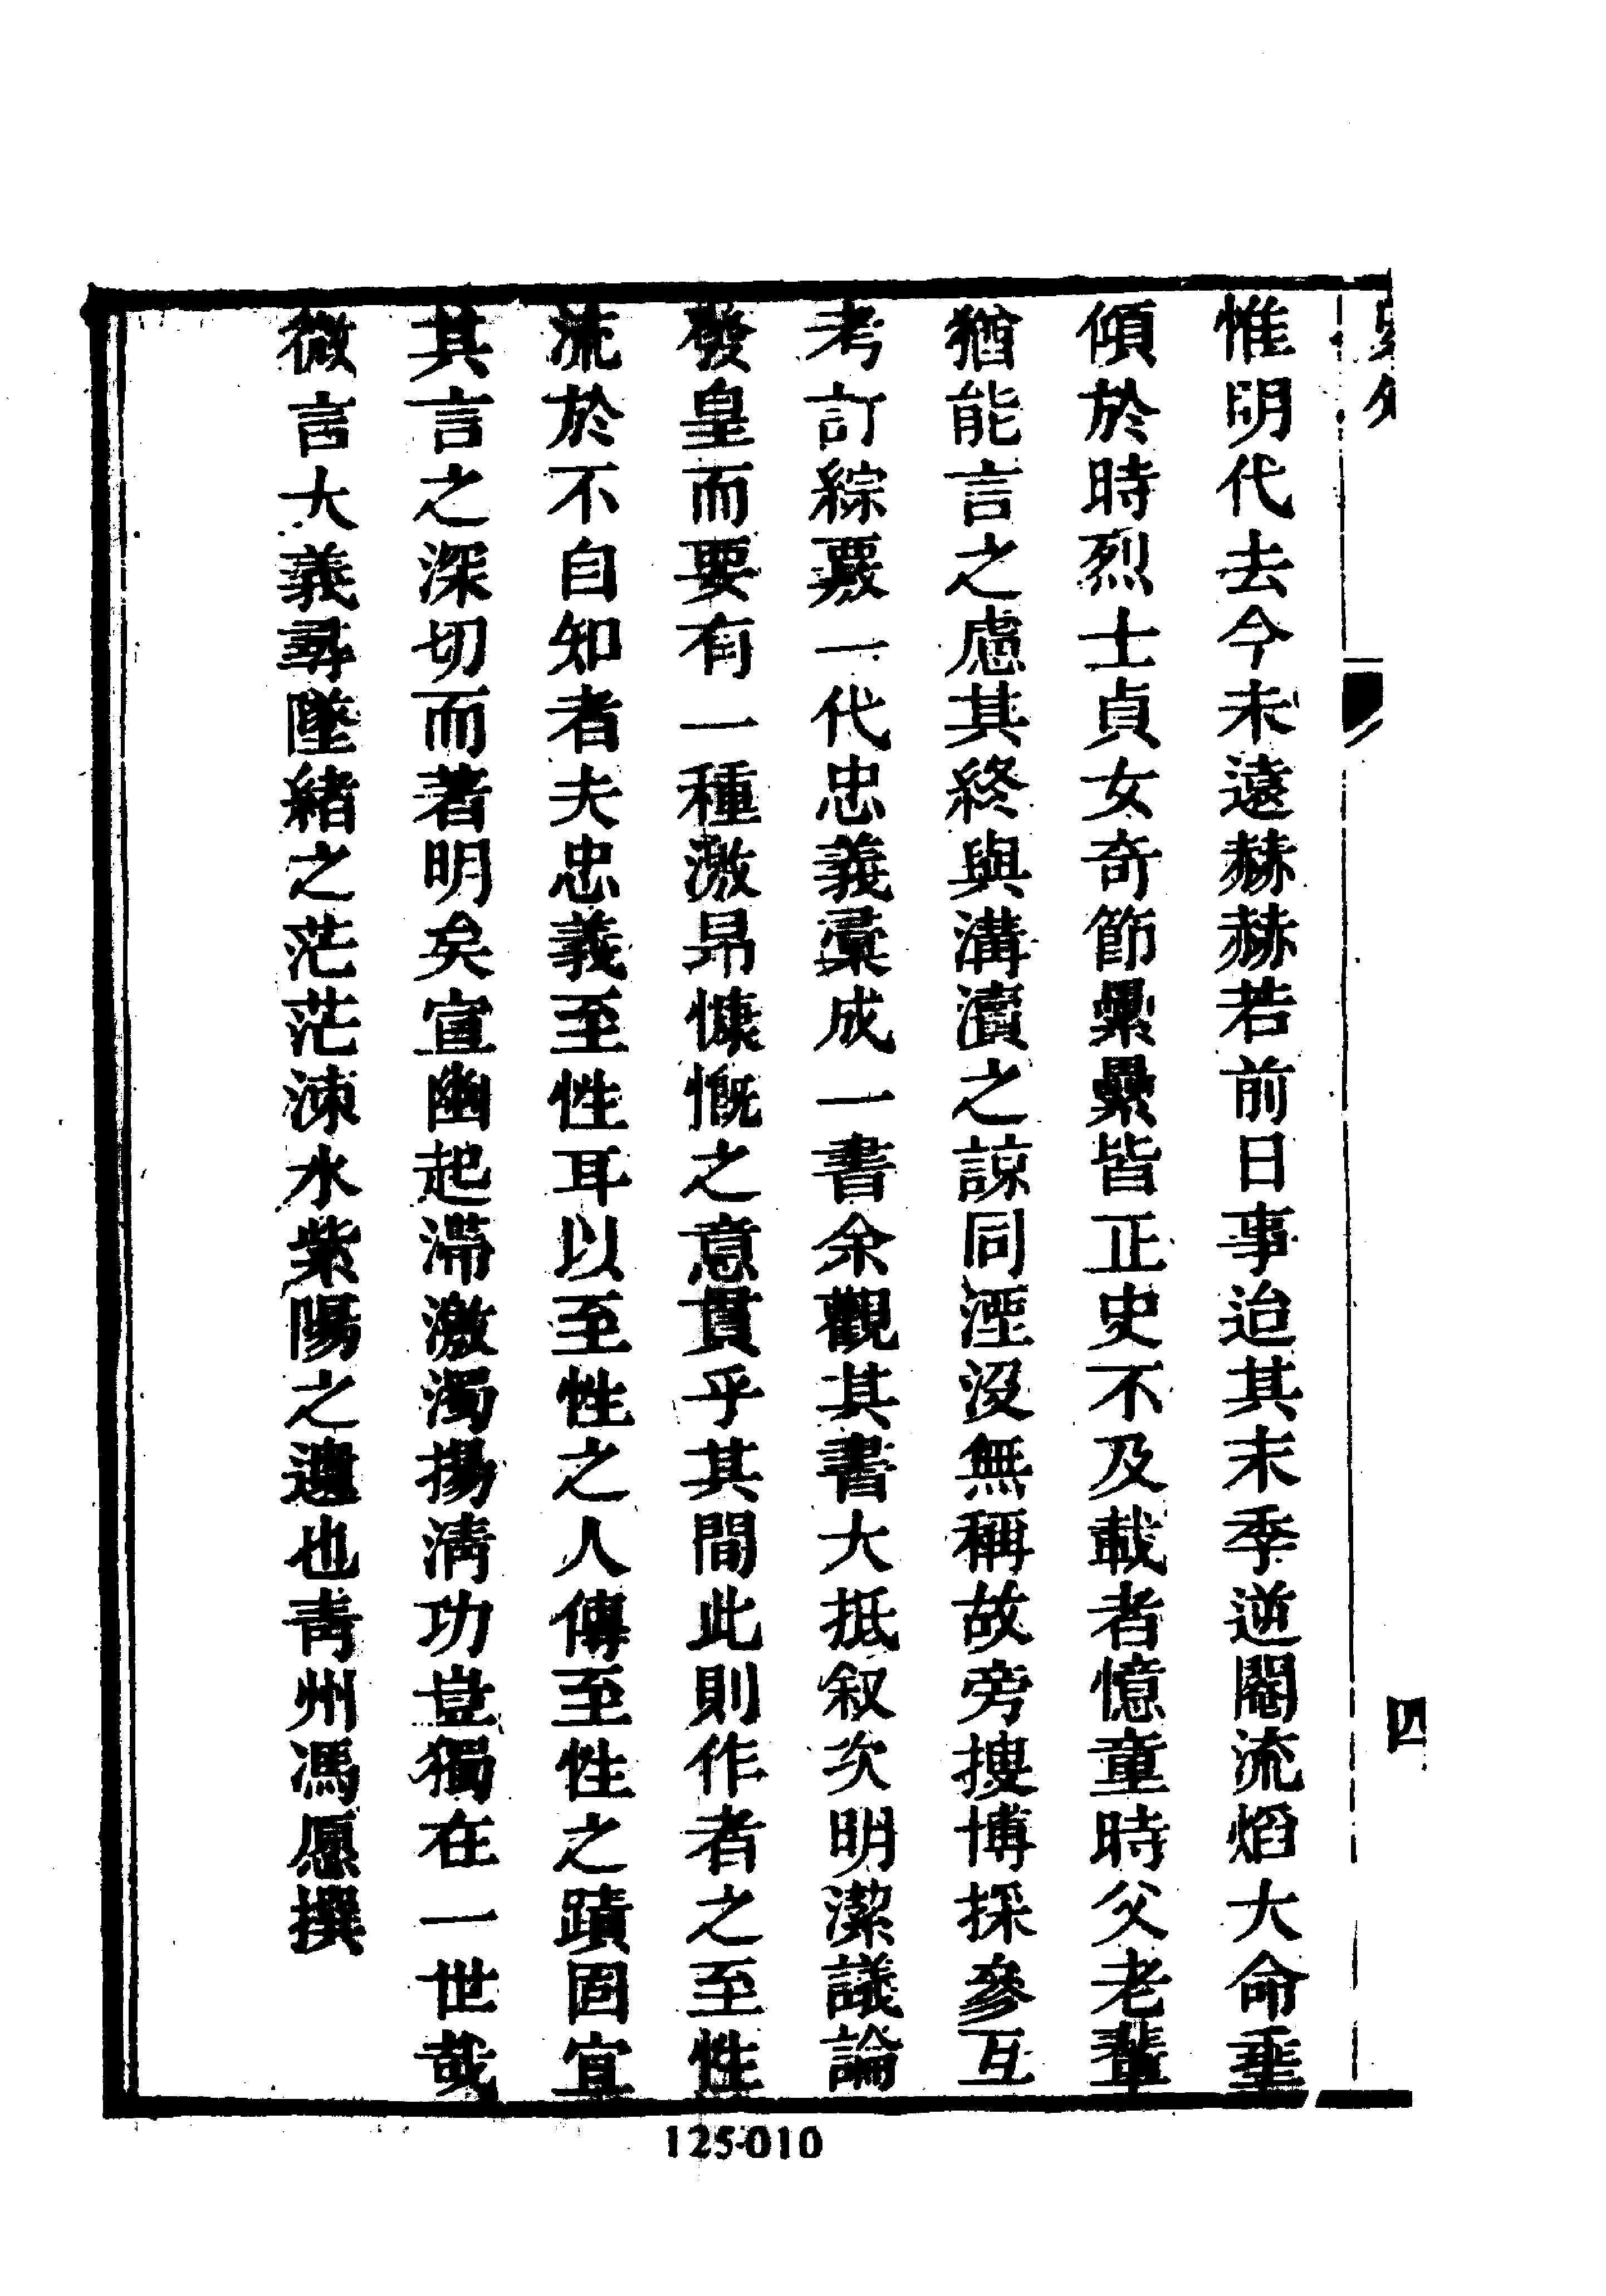 惟明代去今未遠赫赫若前日事迨其末季逆閹流熖大命垂
傾於時烈士貞女奇節纍纍皆正史不及載者憶童時父老輩
猶能言之慮其終與溝瀆之諒同湮沒無稱故旁搜博採參互
考訂綜覈一代忠義彚成一書余觀其書大抵叙次明潔議論
發皇而要有一種激昂慷慨之意貫乎其間此則作者之至性
流於不自知者夫忠義至性耳以至性之人傳至性之蹟固宜
其言之深切而著明矣宣幽起滯激濁揚清功豈獨在一世哉
微言大義尋墜緒之茫茫涑水紫陽之遺也青州馮愿撰
四
125-010